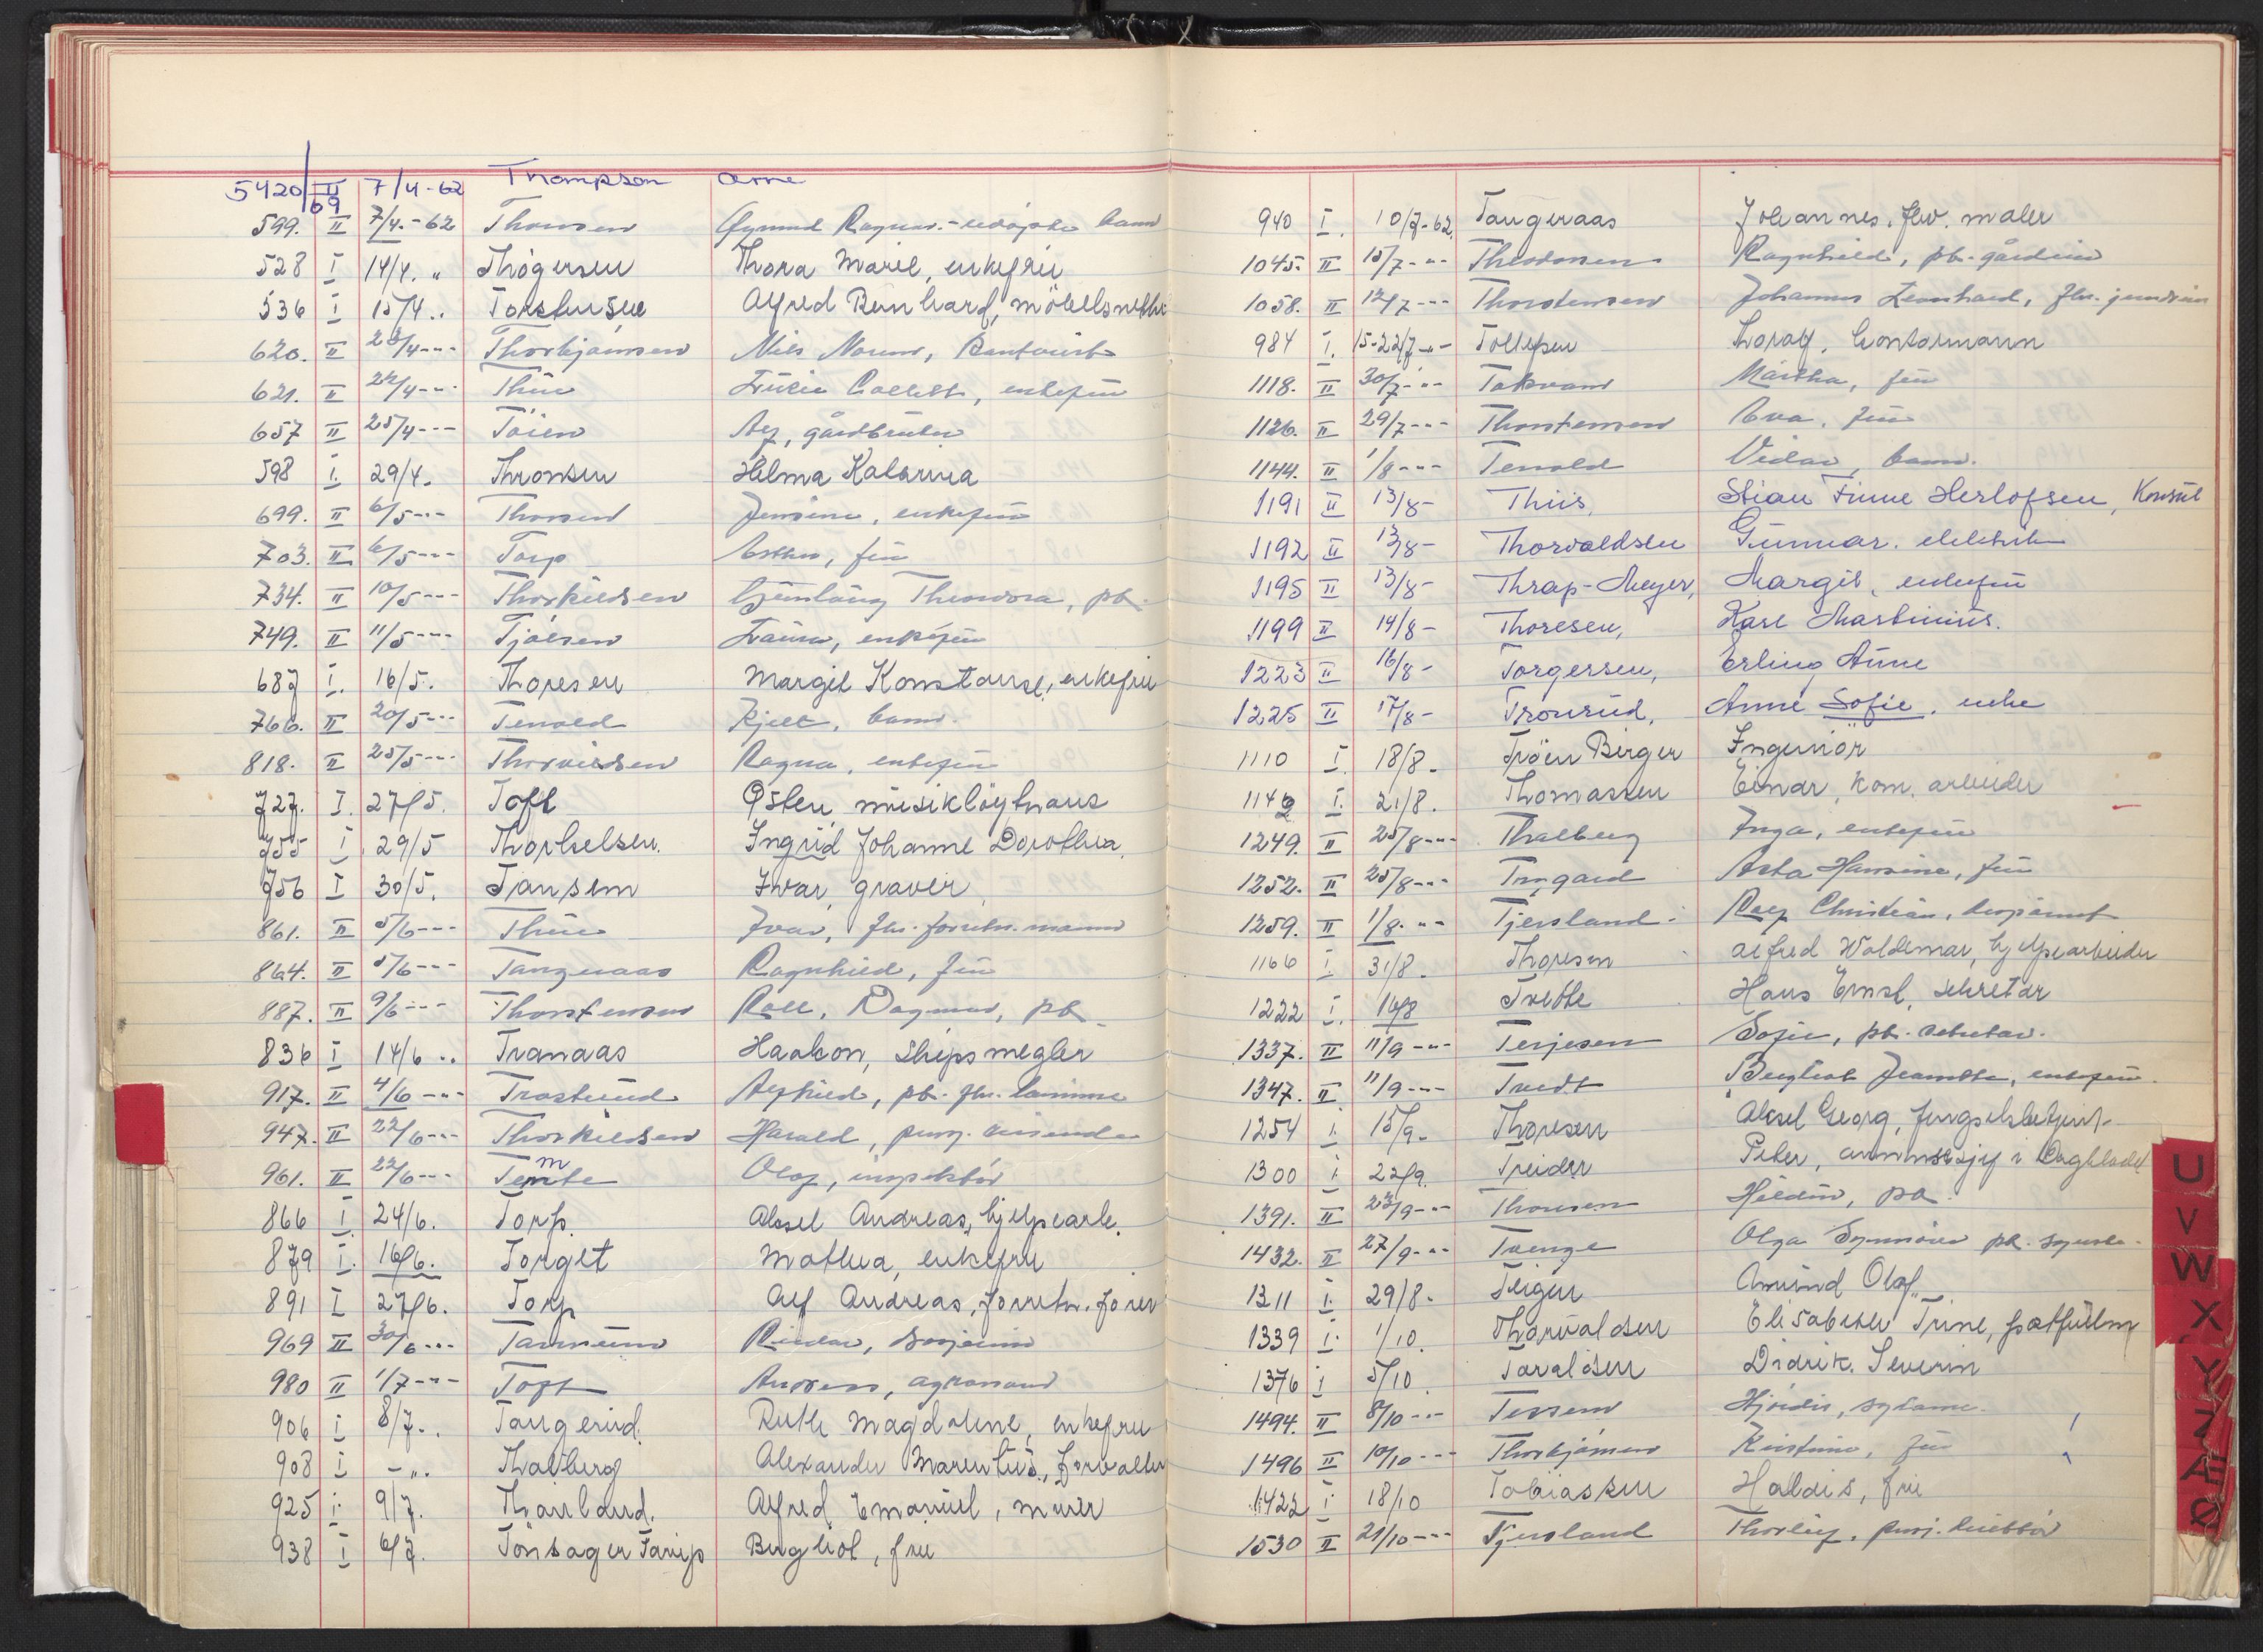 5420/69 II 7/4-62 Thompson Arne
599. II 7/4.-62 Thomsen Øymund Ragnar.-udøpt barn
528 I 14/4. " Thøgersen Thora Marie, enkefru
536 I 15/4.. Torstensen Alfred Bernhard, möbelsnekker
620. II 23/4--- Thorbjørnsen Nils
621. II 24/4--- Thüe enkefru
657 II 25/4--- Töien gårdbruker
598 I. 29/4. Thronsen Helma Katarina
699. II 6/5--- Thorsen Jensine, enkefru
703. II 6/5--- Torp Esther, frü
734. II 10/5--- Thorkildsen Theodora, pb.
749. II 11/5--- Tjölsen Laura, enkefrü
687 I. 16/5. Thoresen Margit Konstanse, enkefru
766. II 20/5--- Tenold Kjell, barn.
818. II 25/5--- Thorvildsen Ragna, enkefrü
727. I. 27/5. Toft Østen musikløytnant
755 I 29/5 Thorkelsen. Ingrid Johanne Dorothea.
756 I 30/5. Tansem Ivar, gravör
861. II 5/6--- Thüe Ivar, fhv. forretn. mann
864. II 5/6--- Tangeraas Ragnhild, frü
887. II 9/6--- Thorstensen Roll, Dagmar, pb.
836 I 14/6 .. Tranaas Haakon, skipsmegler
917. II 4/6 --- Trosterud pb. fhv.
947. II 22/6--- Thorkildsen Harald, pensj.
961. II 22/6--- Temte Olaf, inspektör
866 I 24/6. Torp. Aksel Andreas, hjelpearb.
879 I. 16/6. Torget Mathea, enkefru
891 I 27/6. Torp Alf Andreas, forretn. fører
969 II 30/6--- Reidar,
980 II 1/7--- Toft Anders, agronom
906 I 8/7.. Tangerud. Ruth Magdalene, enkefru
908 I -".. Thalberg Alexander Marentius, forvalter
925 I. 9/7. Thauland. Alfred Emanuel, murer
938 I 6/7. Tönsager Tarup Bergliot, frue
940 I. 10/7-62. Tangeraas Johannes. fhv. maler
1045. II 15/7-"- Theodorsen Ragnhild, pb.
1058. II 12/7--- Thorstensen Johannes Leonhard, fhv.
984 I. 15-22/7-"- Tollefsen Thoralf, kontormann
1118. II 30/7-"- Takvam Märtha, frü
1126. II 29/7--- Thorstensen Eva, frü
1144. II 1/8-"- Tenold Vidar, barn.
1191 II 13/8- Thiis, Stian Finne Herlofsen, Konsul
1192 II 13/8- Thorvaldsen Gunnar. elektrik
1195 II 13/8- Thrap-Meyer, Margit, enkefrü
1199 II 14/8- Thoresen, Karl Martinius.
1223 II 16/8- Torgersen, Erling Arne
1225 II 17/8- Tronrud, Anne Sofie, enke
1110 I. 18/8. Tröen Birger Ingeniør
1142 I. 21/8. Thomassen Einar, kom. arbeider
1249. II 25/8--- Thalberg Inga, enkefrü
1252. II 25/8--- Tingaard Asta Hansine, frü
1259. II 1/8.-"- Tjersland Rolf Christian,
1166 I 31/8. Thoresen Alfred Waldemar, hjelpearbeider
1222 I. 14/8 Tvette Hans Ernst, sekretær
1337. II 11/9-"- Terjesen Sofie, pb.
1347. II 11/9--- Tvedt Bergliot Jeanette, enkefrü.
1254 I. 15/9. Thoresen Aksel Georg, fengselsbetjent.
1300 I. 22/9. Treider Peter, annonsesjef i Dagbladet
1391. II 23/9--- Thomsen Hildur, pb.
1432. II 27/9--- Tvenge Olga Synnöve pb.
1311 I. 29/8. Teigen Amund Olaf
1339 I. 1/10. Thorvaldsen Elisabeth Trine, postfullm
1376 I 5/10. Taraldsen Didrik. Severin
1494. II 8/10--- Hjördis, sydame.
1496 II 10/10--- Thorbjörnsen Kristine, frü
1422 I. 18/10 Tobiassen Haldis, frue
1530 II 21/10--- Tjersland Thorleif, pensj. direktør
U
V
W
X
Y
Z
Æ
Ø